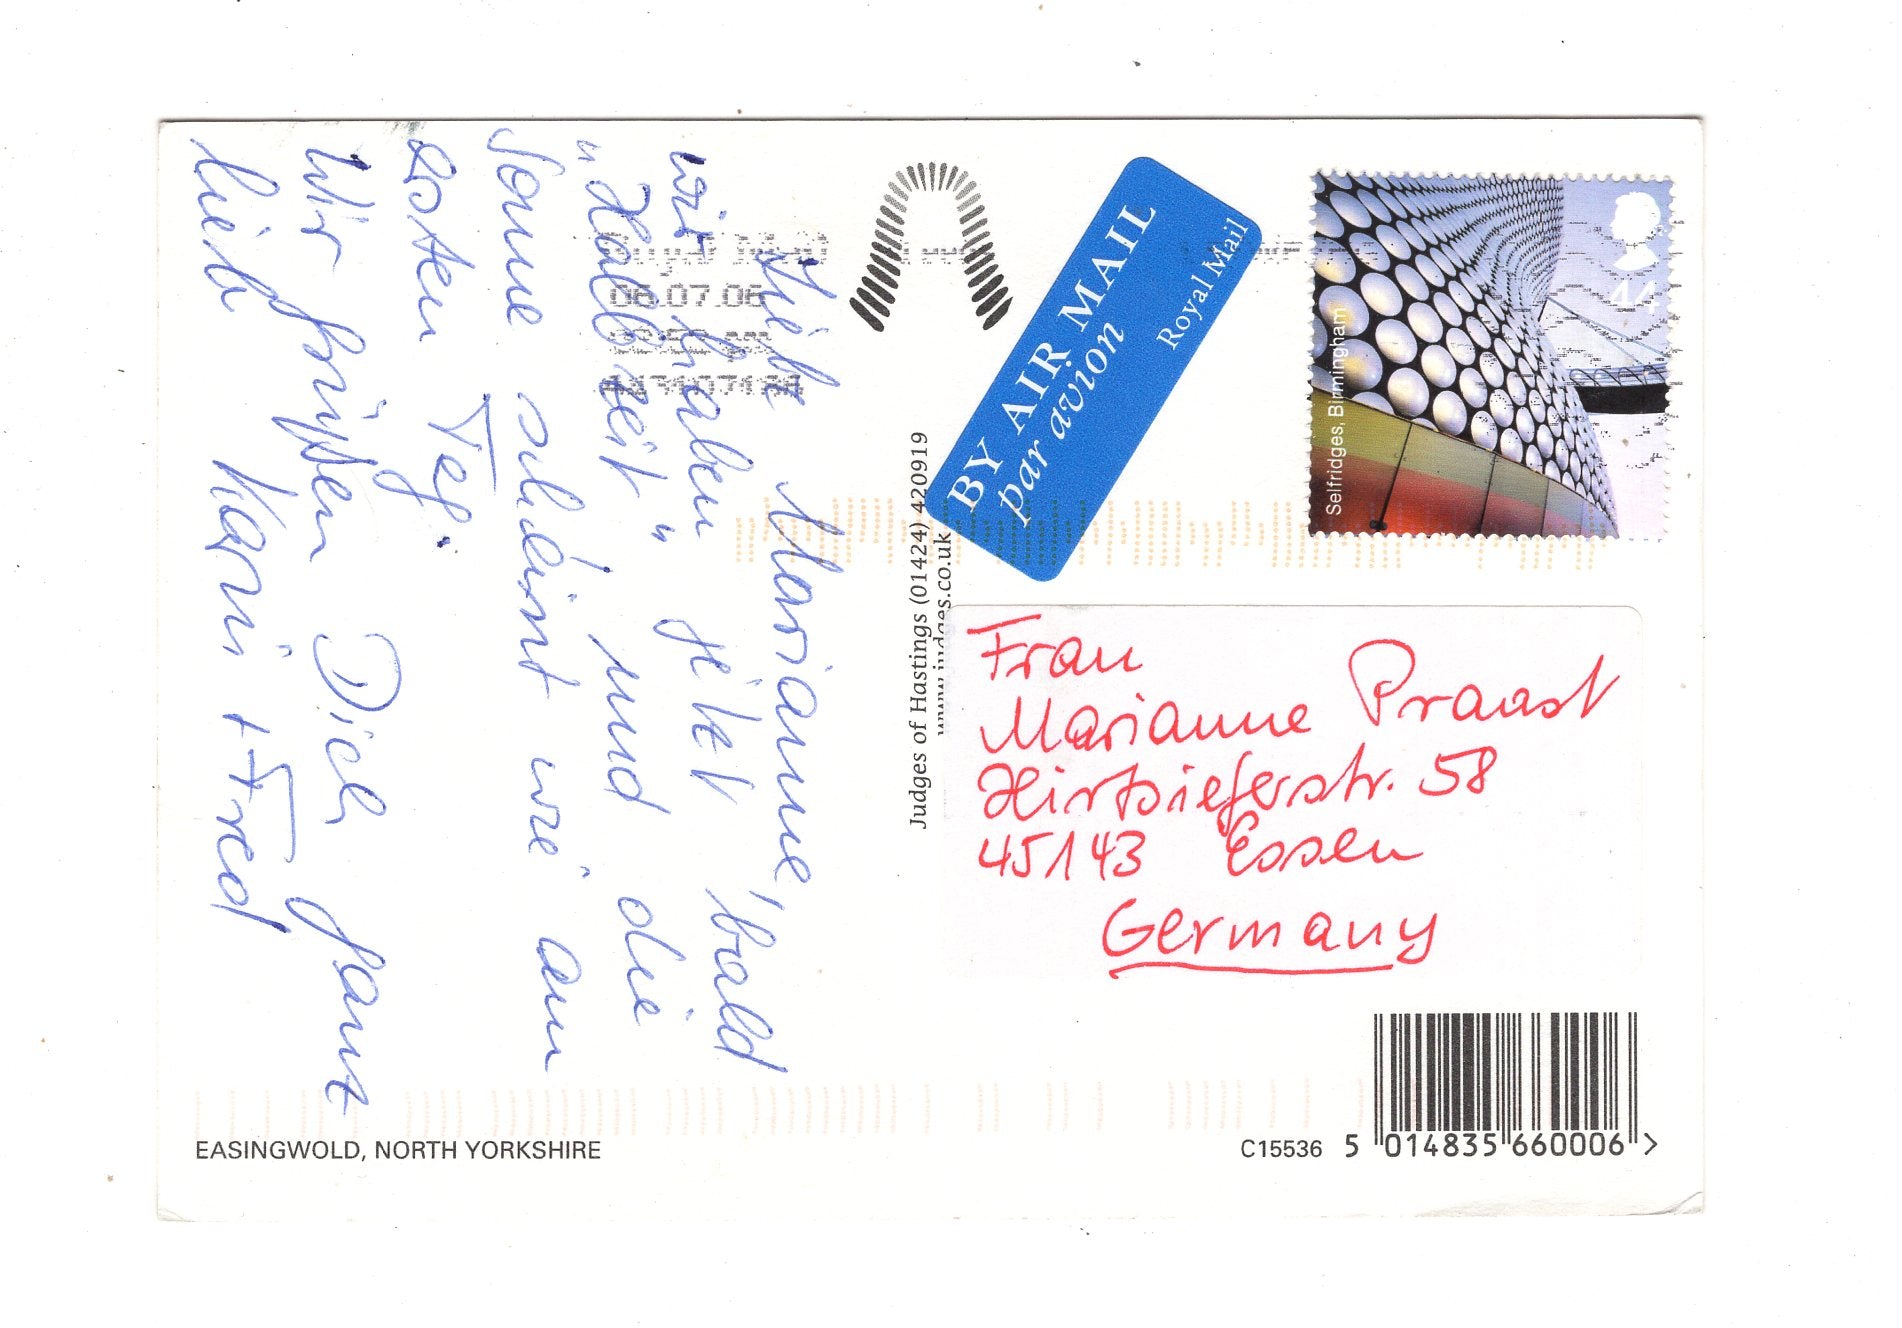 Liebe Marianne,
wir haben jetzt bald
"Halbzeit" und die
Sonne scheint wie am
ersten Tag.
Wir grüßen Dich ganz
lieb Karin + Fred
EASINGWOLD, NORTH YORKSHIRE
06.07.06
Judges of Hastings (01424) 420919
www.judges.co.uk
BY AIR MAIL
par avion
Royal Mail
44
Selfridges, Birmingham
Frau
Marianne Praast
Hirtsieferstr. 58
45143 Essen
Germany
C15536
5 014835 660006 >